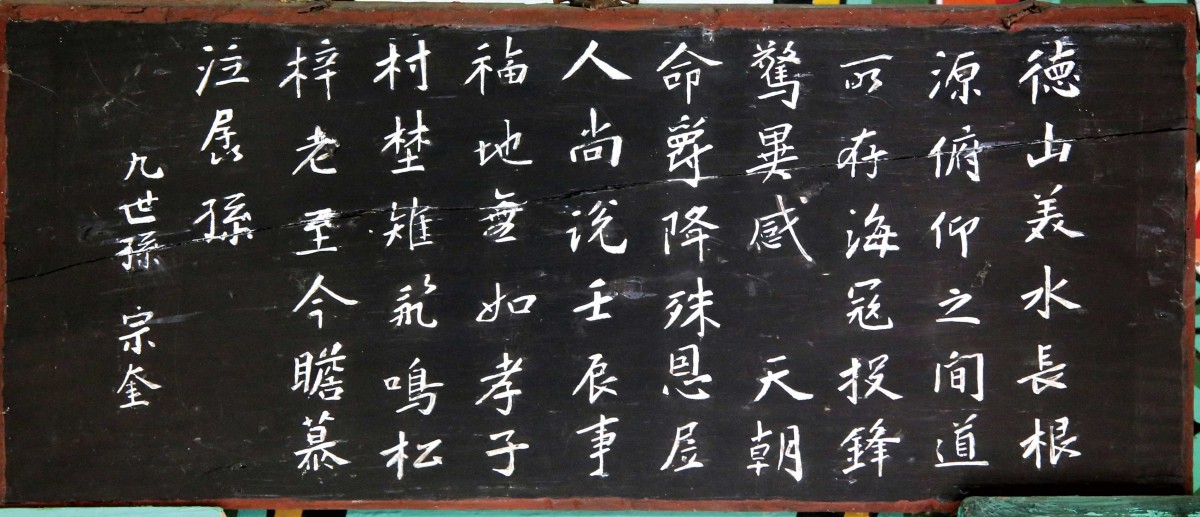 德山美水長根
源俯仰之間道
所存海冦投鋒
驚異感 天朝
命爵降殊恩居
人尚說壬辰事
福地無如孝子
村埜雉飛鳴松
梓老至今瞻慕
注孫
九世孫 宗奎